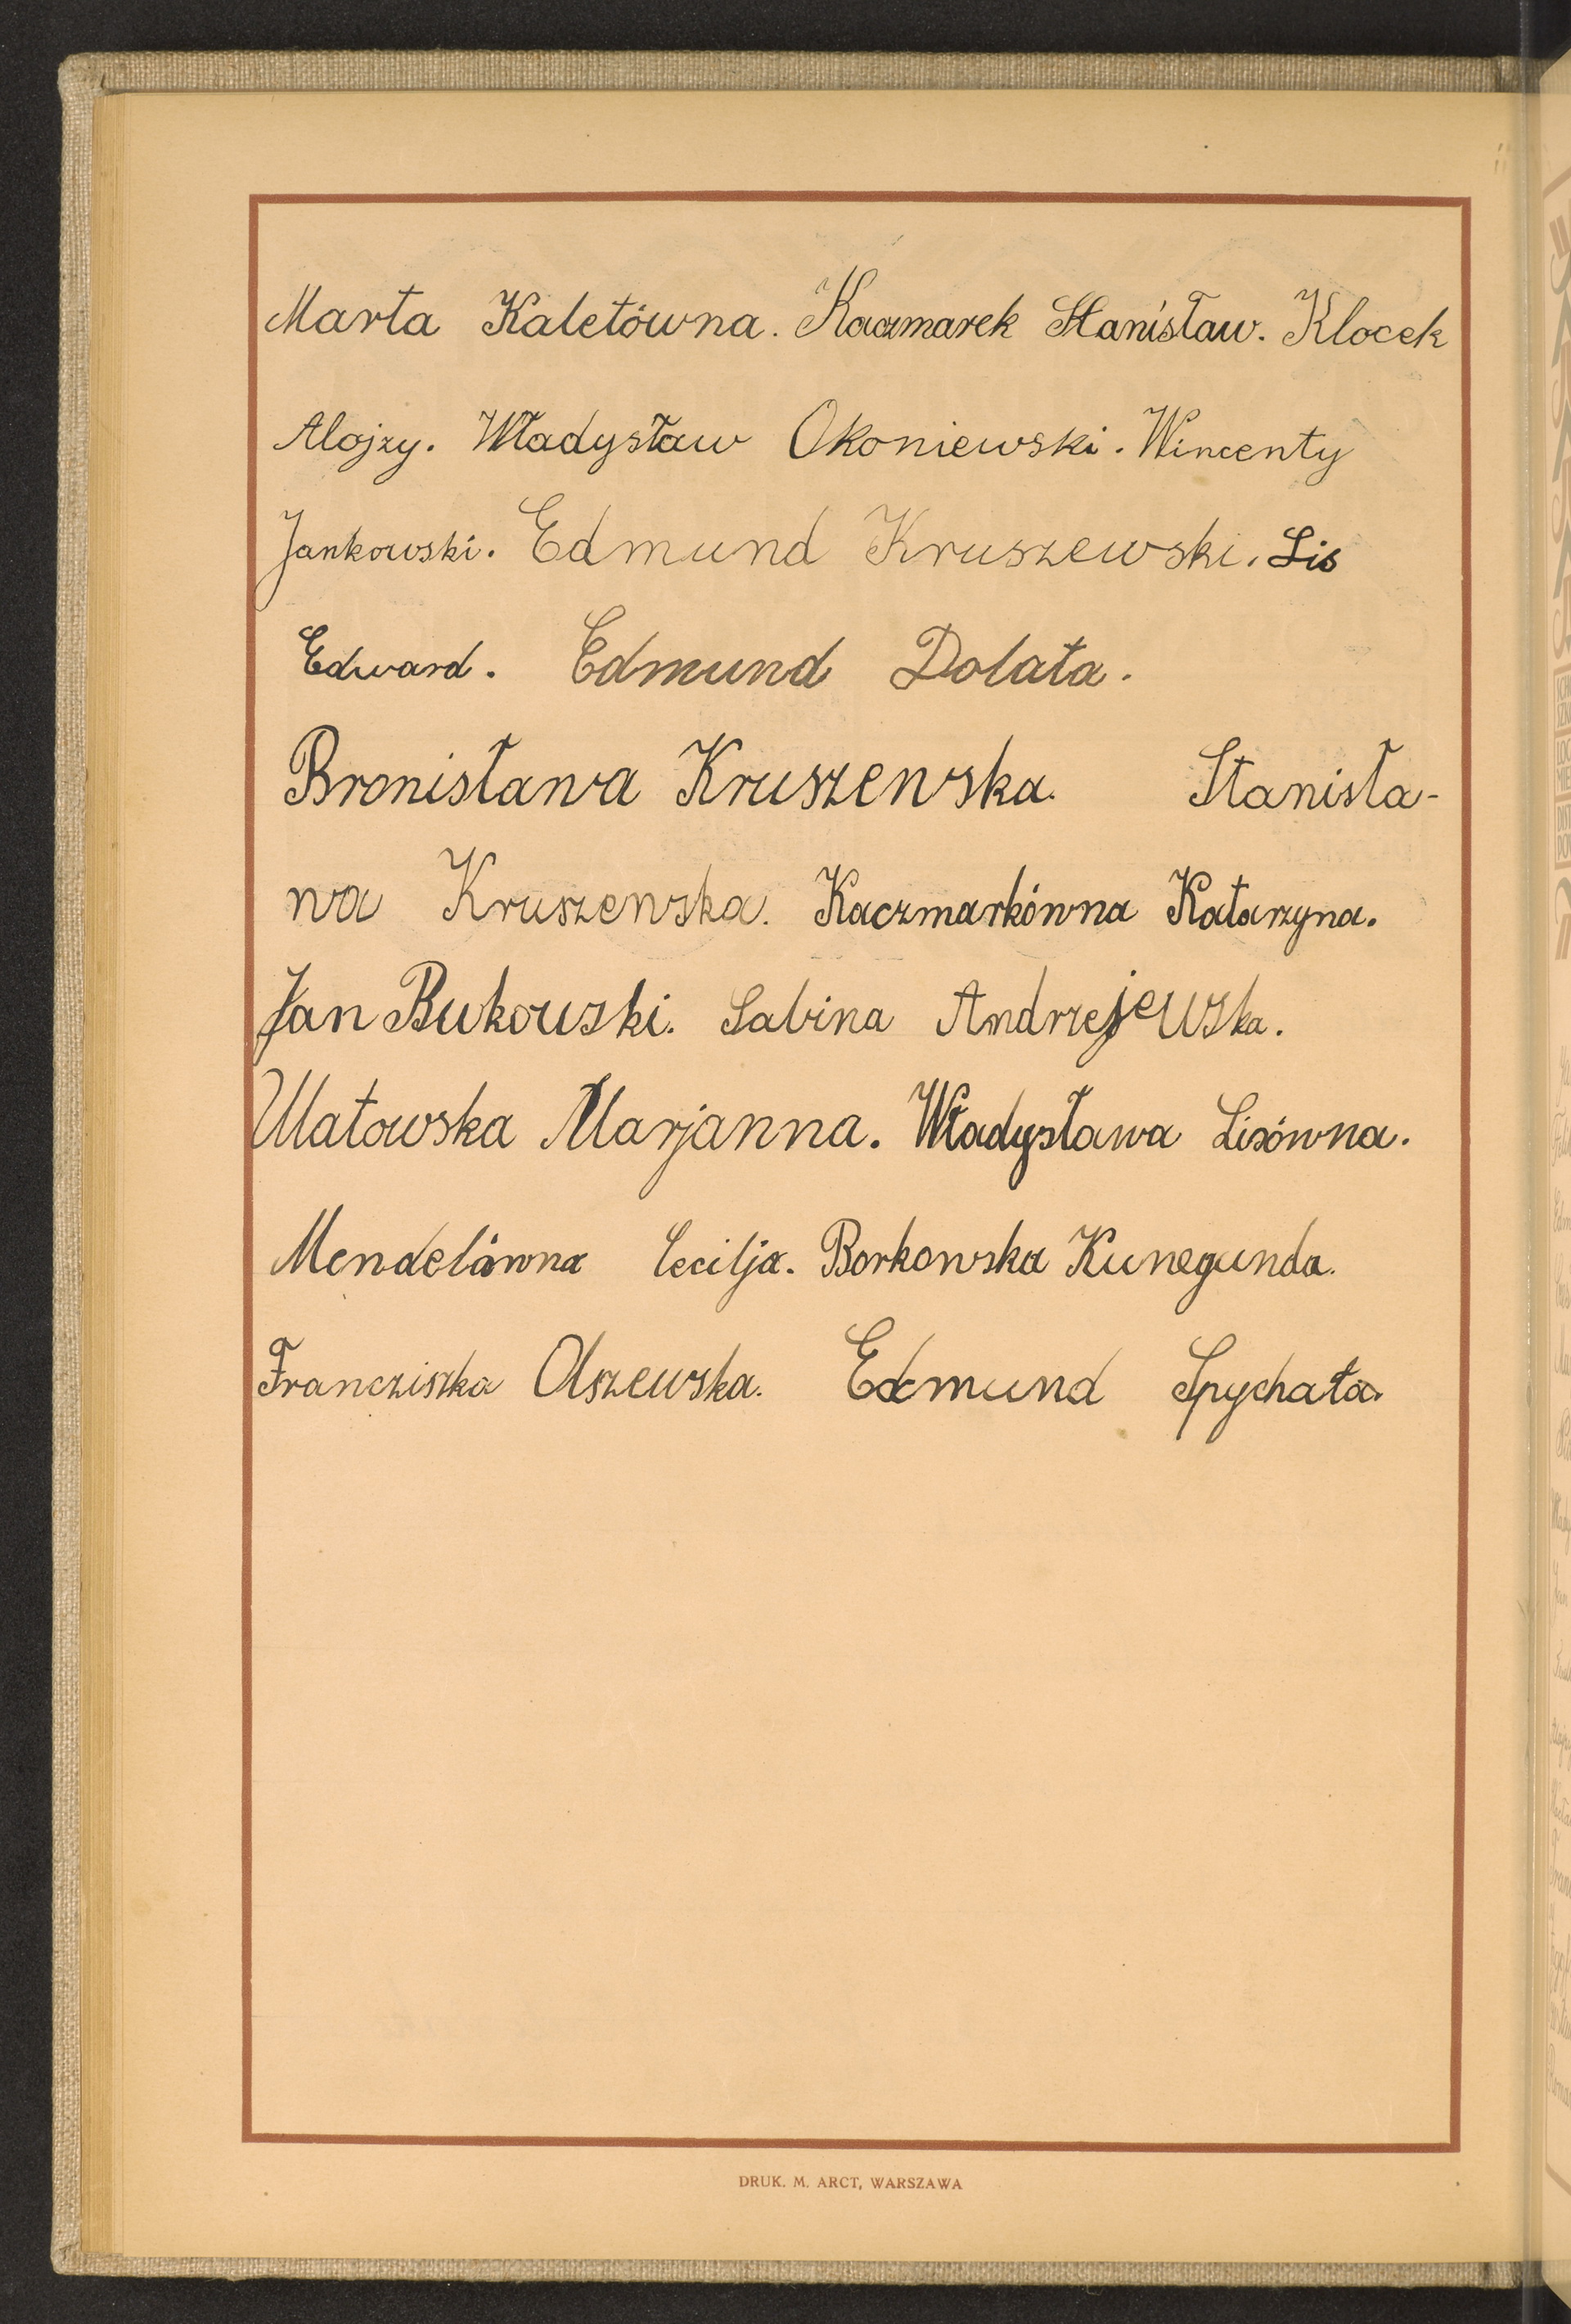 Marta Kaletówna. Kaczmarek Stanisław. Klocek
Alojzy. Władysław Okoniewski. Wincenty
Jankowski. Edmund Kruszewski. Lis
Edward. Edmund Dolata.
Bronisława Kruszewska. Stanisła-
wa Kruszewska. Kaczmarkówna Katarzyna.
Jan Bukowski. Sabina Andrzejewska.
Ulatowska Marjanna. Władysława Lisówna.
Mendelówna Cecilja. Borkowska Kunegunda.
Franciszka Olszewska. Edmund Spychała.
DRUK. M. ARCT, WARSZAWA